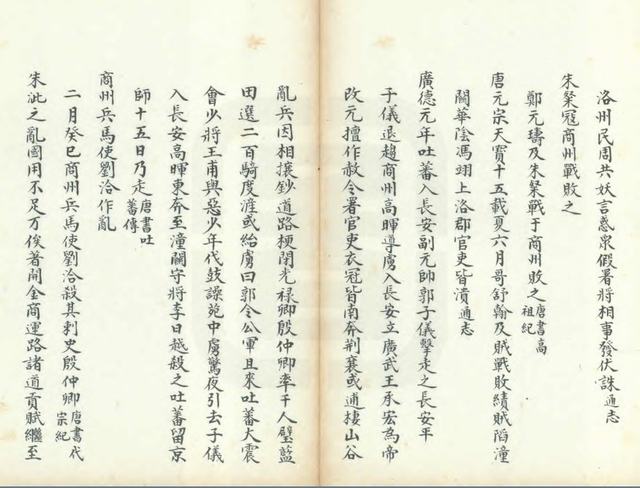 洛州民周共妖言惑衆假署將相事發伏誅通志
朱粲寇商州戰敗之
鄭元璹及朱粲戰于商州敗之唐書高祖紀
唐元宗天寶十五載夏六月哥舒翰及賊戰敗績賊陷潼
關華陰馮翊上洛郡官吏皆潰通志
廣德元年吐蕃入長安副元帥郭子儀擊走之長安平
子儀退趨商州高暉導虜入長安立廣武王承宏為帝
改元擅作赦令署官吏衣冠皆南奔荆襄或逋棲山谷
亂兵因相攘鈔道路梗閉光禄卿殷仲卿率千人壁藍
田選二百騎度滻或紿虜曰郭令公軍且來吐蕃大震
會少將王甫與惡少年伐鼓譟苑中虜驚夜引去子儀
入長安高暉東奔至潼關守將李日越殺之吐蕃留京
師十五日乃走唐書吐蕃傳
商州兵馬使劉洽作亂
二月癸巳商州兵馬使劉洽殺其刺史殷仲卿唐書代宗紀
朱泚之亂國用不足万俟著開金商運路諸道貢賦繼至